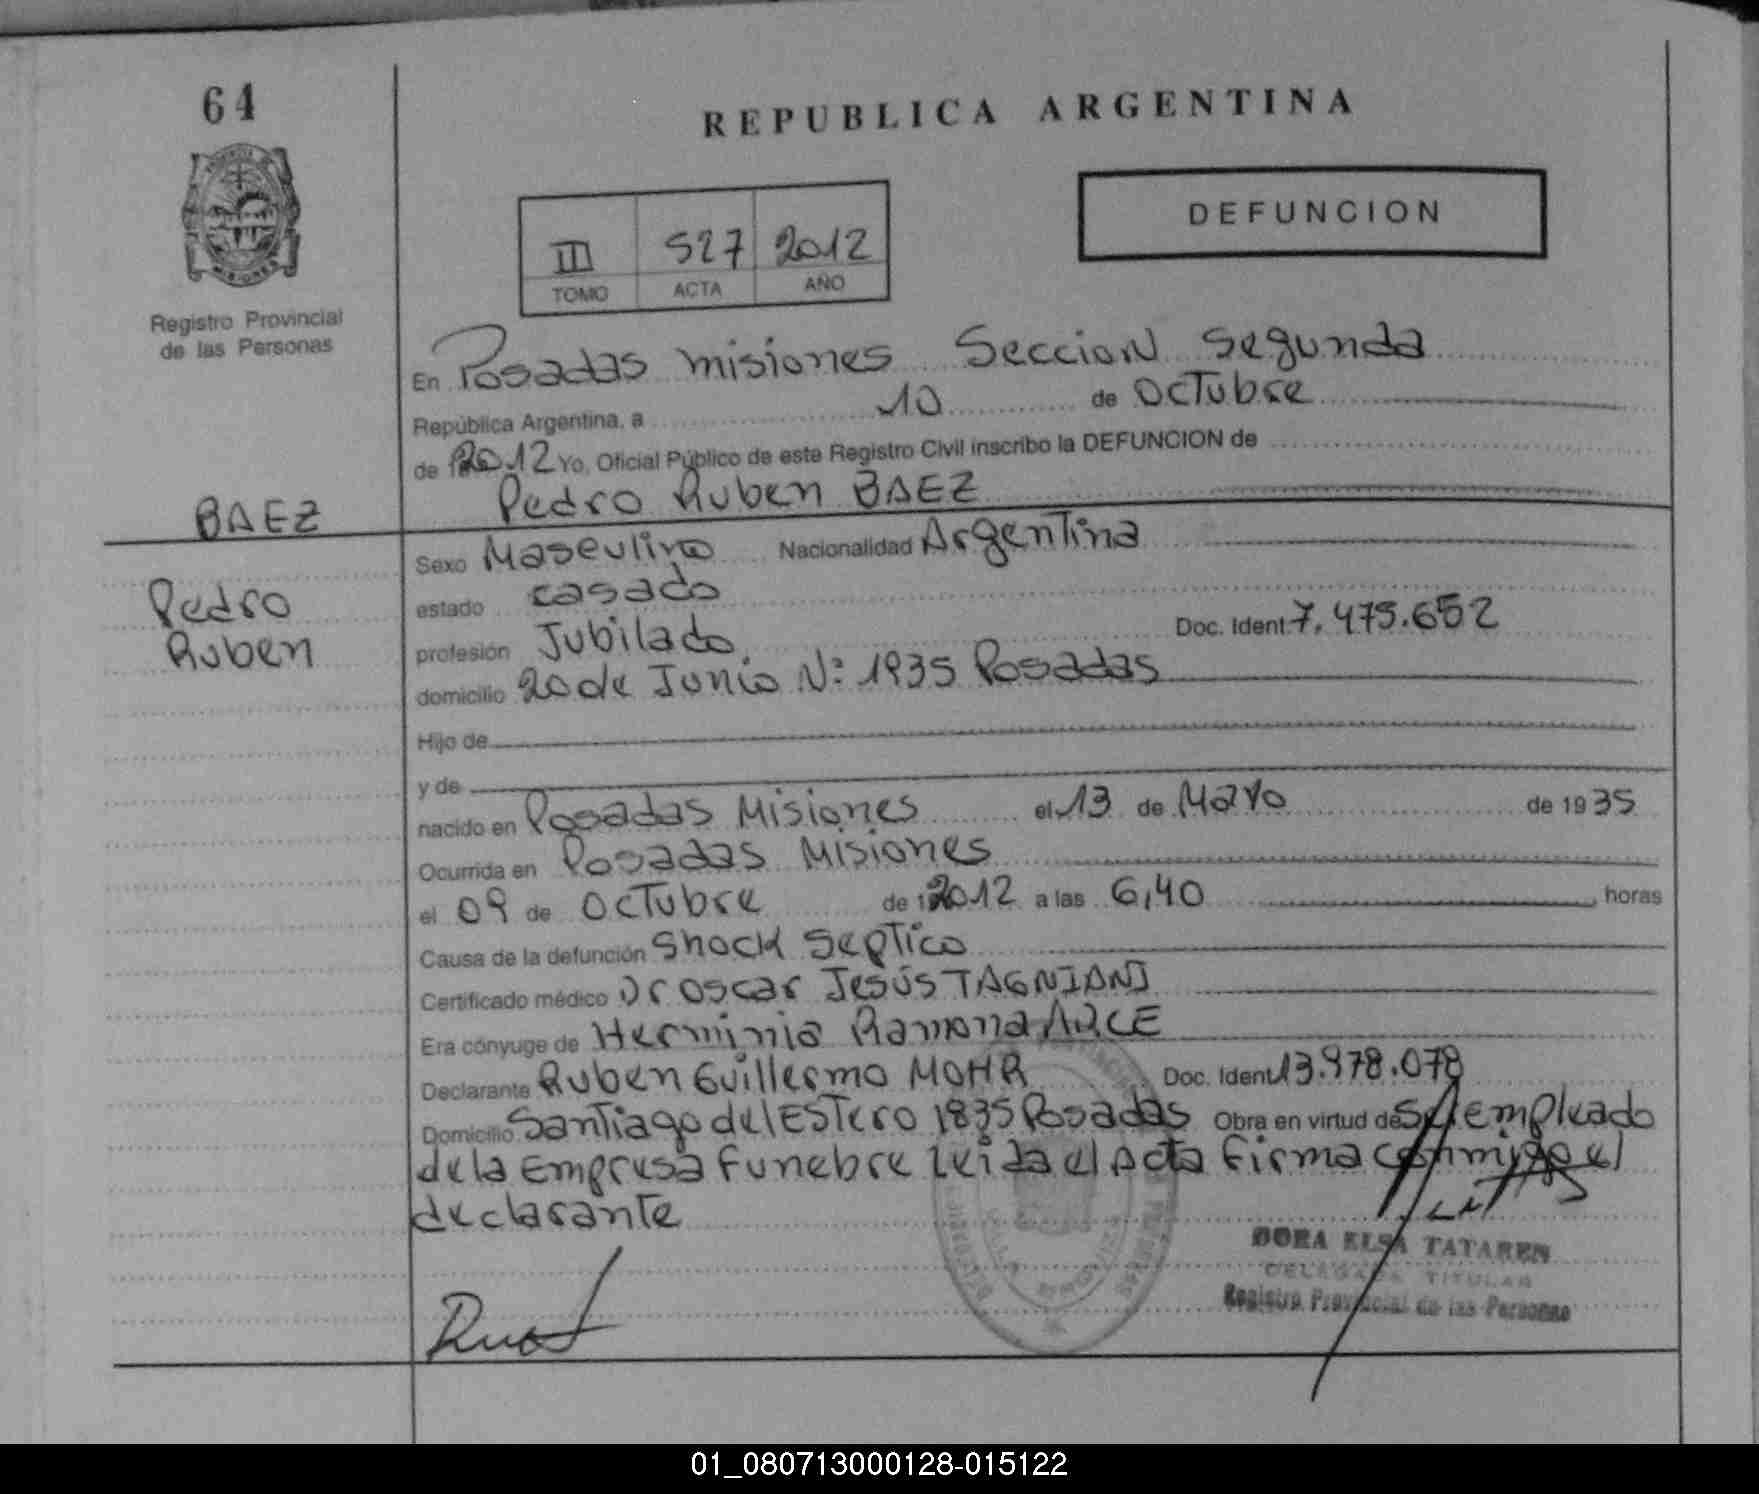 64
REPUBLICA ARGENTINA
DEFUNCION
III 527 2012
TOMO ACTA AÑO
Registro Provincial
de las Personas
En Posadas misiones Seccion Segunda
República Argentina, a 10 de Octubre
de 2012 Yo, Oficial Público de este Registro Civil inscribo la DEFUNCION de
Pedro Ruben BAEZ
BAEZ
Pedro
Ruben
Sexo Masculino Nacionalidad Argentina
estado casado
profesión Jubilado Doc. Ident. 7.475.652
domicilio 20 de Junio N: 1935 Posadas
Hijo de
y de
nacido en Posadas Misiones el 13 de Mayo de 1935
Ocurrida en Posadas Misiones
el 09 de Octubre de 2012 a las 6,40 horas
Causa de la defunción Shock Septico
Certificado médico Dr Oscar Jesús TAGNIANI
Era cónyuge de Herminia Ramona ARCE
Declarante Ruben Guillermo MOHR Doc. Ident. 13.978.078
Domicilio Santiago del Estero 1835 Posadas Obra en virtud de Ser empleado
de la Empresa Funebre Leida el Acta Firma conmigo el
declarante
DORA ELSA TATAREN
DELEGADA TITULAR
Registro Provincial de las Personas
01_080713000128-015122